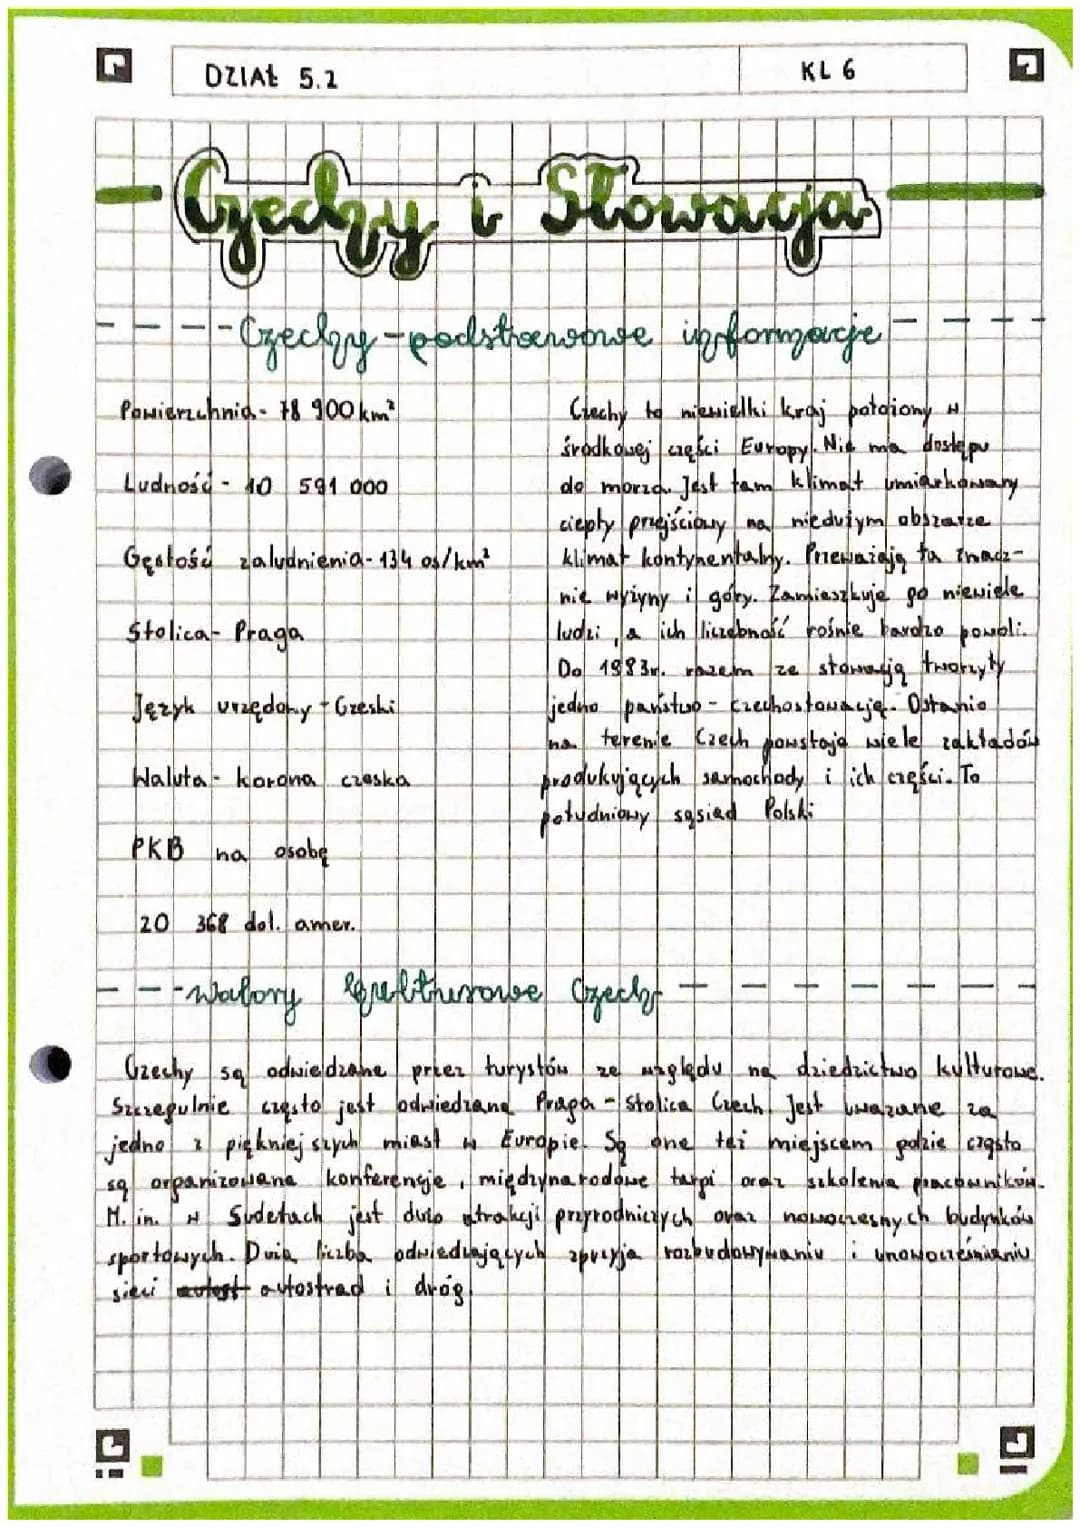 DZIAŁ 5.2
KL 6
Czechy i Słowacja
Czechy - podstawowe informacje
Powierzchnia - 78 900 km²
Ludność - 10 591 000
Gęstość zaludnienia - 134 os/km²
Stolica - Praga
Język urzędowy - Czeski
Waluta - korona czeska
PKB na osobę
20 368 dol. amer.
Czechy to niewielki kraj położony w
środkowej części Europy. Nie ma dostępu
do morza. Jest tam klimat umiarkowany
ciepły przejściowy na niedużym obszarze
klimat kontynentalny. Przeważają tu znacz-
nie wyżyny i góry. Zamieszkuje go niewiele
ludzi, a ich liczebność rośnie bardzo powoli.
Do 1993r. razem ze słowacją tworzyły
jedno państwo - czechosłowację. Ostanio
na terenie Czech powstaja wiele zakładów
produkujących samochody i ich części. To
południowy sąsiad Polski
Walory kulturowe Czech
Czechy są odwiedzane przez turystów ze względu na dziedzictwo kulturowe.
Szczegulnie często jest odwiedzana Praga - stolica Czech. Jest uważane za
jedno z piękniejszych miast w Europie. Są one też miejscem gdzie często
są organizowane konferencje, międzynarodowe targi oraz szkolenia pracowników.
M. in. w Sudetach jest dużo atrakcji przyrodniczych oraz nowoczesnych budynków
sportowych. Duża liczba odwiedzających sprzyja rozbudowywaniu i unowocześnianiu
sieci autost autostrad i dróg.